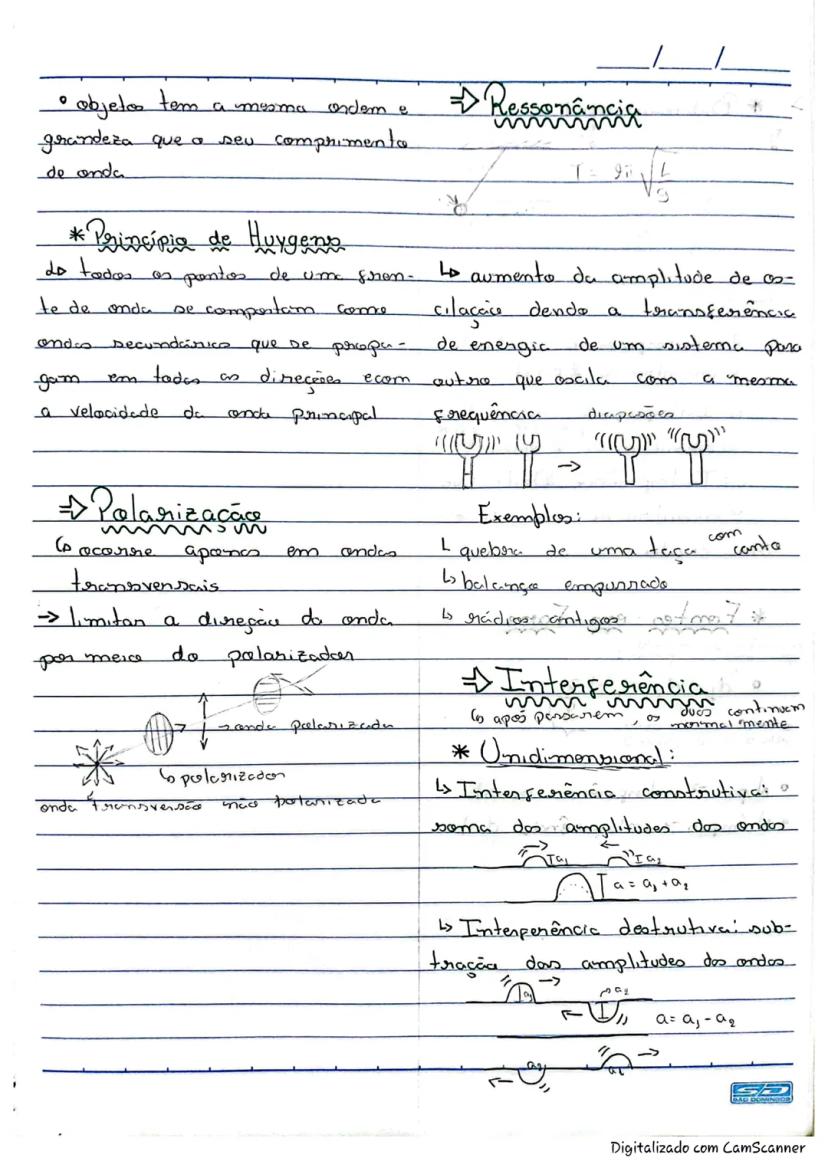 ___/___/___
° objetos tem a mesma ordem e
grandeza que o seu comprimento
de onda
* Princípio de Huygens
todos os pontos de uma fren-
te de onda se comportam como
ondas secundárias que se propa-
gam em todas as direções e com
a velocidade da onda principal
⇒ Polarização
↳ ocorre apenas em ondas
transversais
→ limitar a direção da onda
por meio do polarizador
→ onda polarizada
↳ polarizador
onda transversão não polarizada
⇒ Ressonância
T = 2π √L/g
↳ aumento da amplitude de os-
cilação dendo a transferência
de energia de um sistema para
outro que oscila com a mesma
frequência diapasões
→
Exemplos:
↳ quebra de uma taça com canto
↳ balanço empurrado
↳ rádios antigos
⇒ Interferência
↳ após passarem, as duas continuam
normal mente
* Unidimensional:
↳ Interferência construtiva:
soma das amplitudes das ondas
a₁ a₂
a = a₁ + a₂
↳ Interferência destrutiva: sub-
tração das amplitudes das ondas
a₁ a₂
a = a₁ - a₂
a₂ a₁
SD
SÃO DOMINGOS
Digitalizado com CamScanner